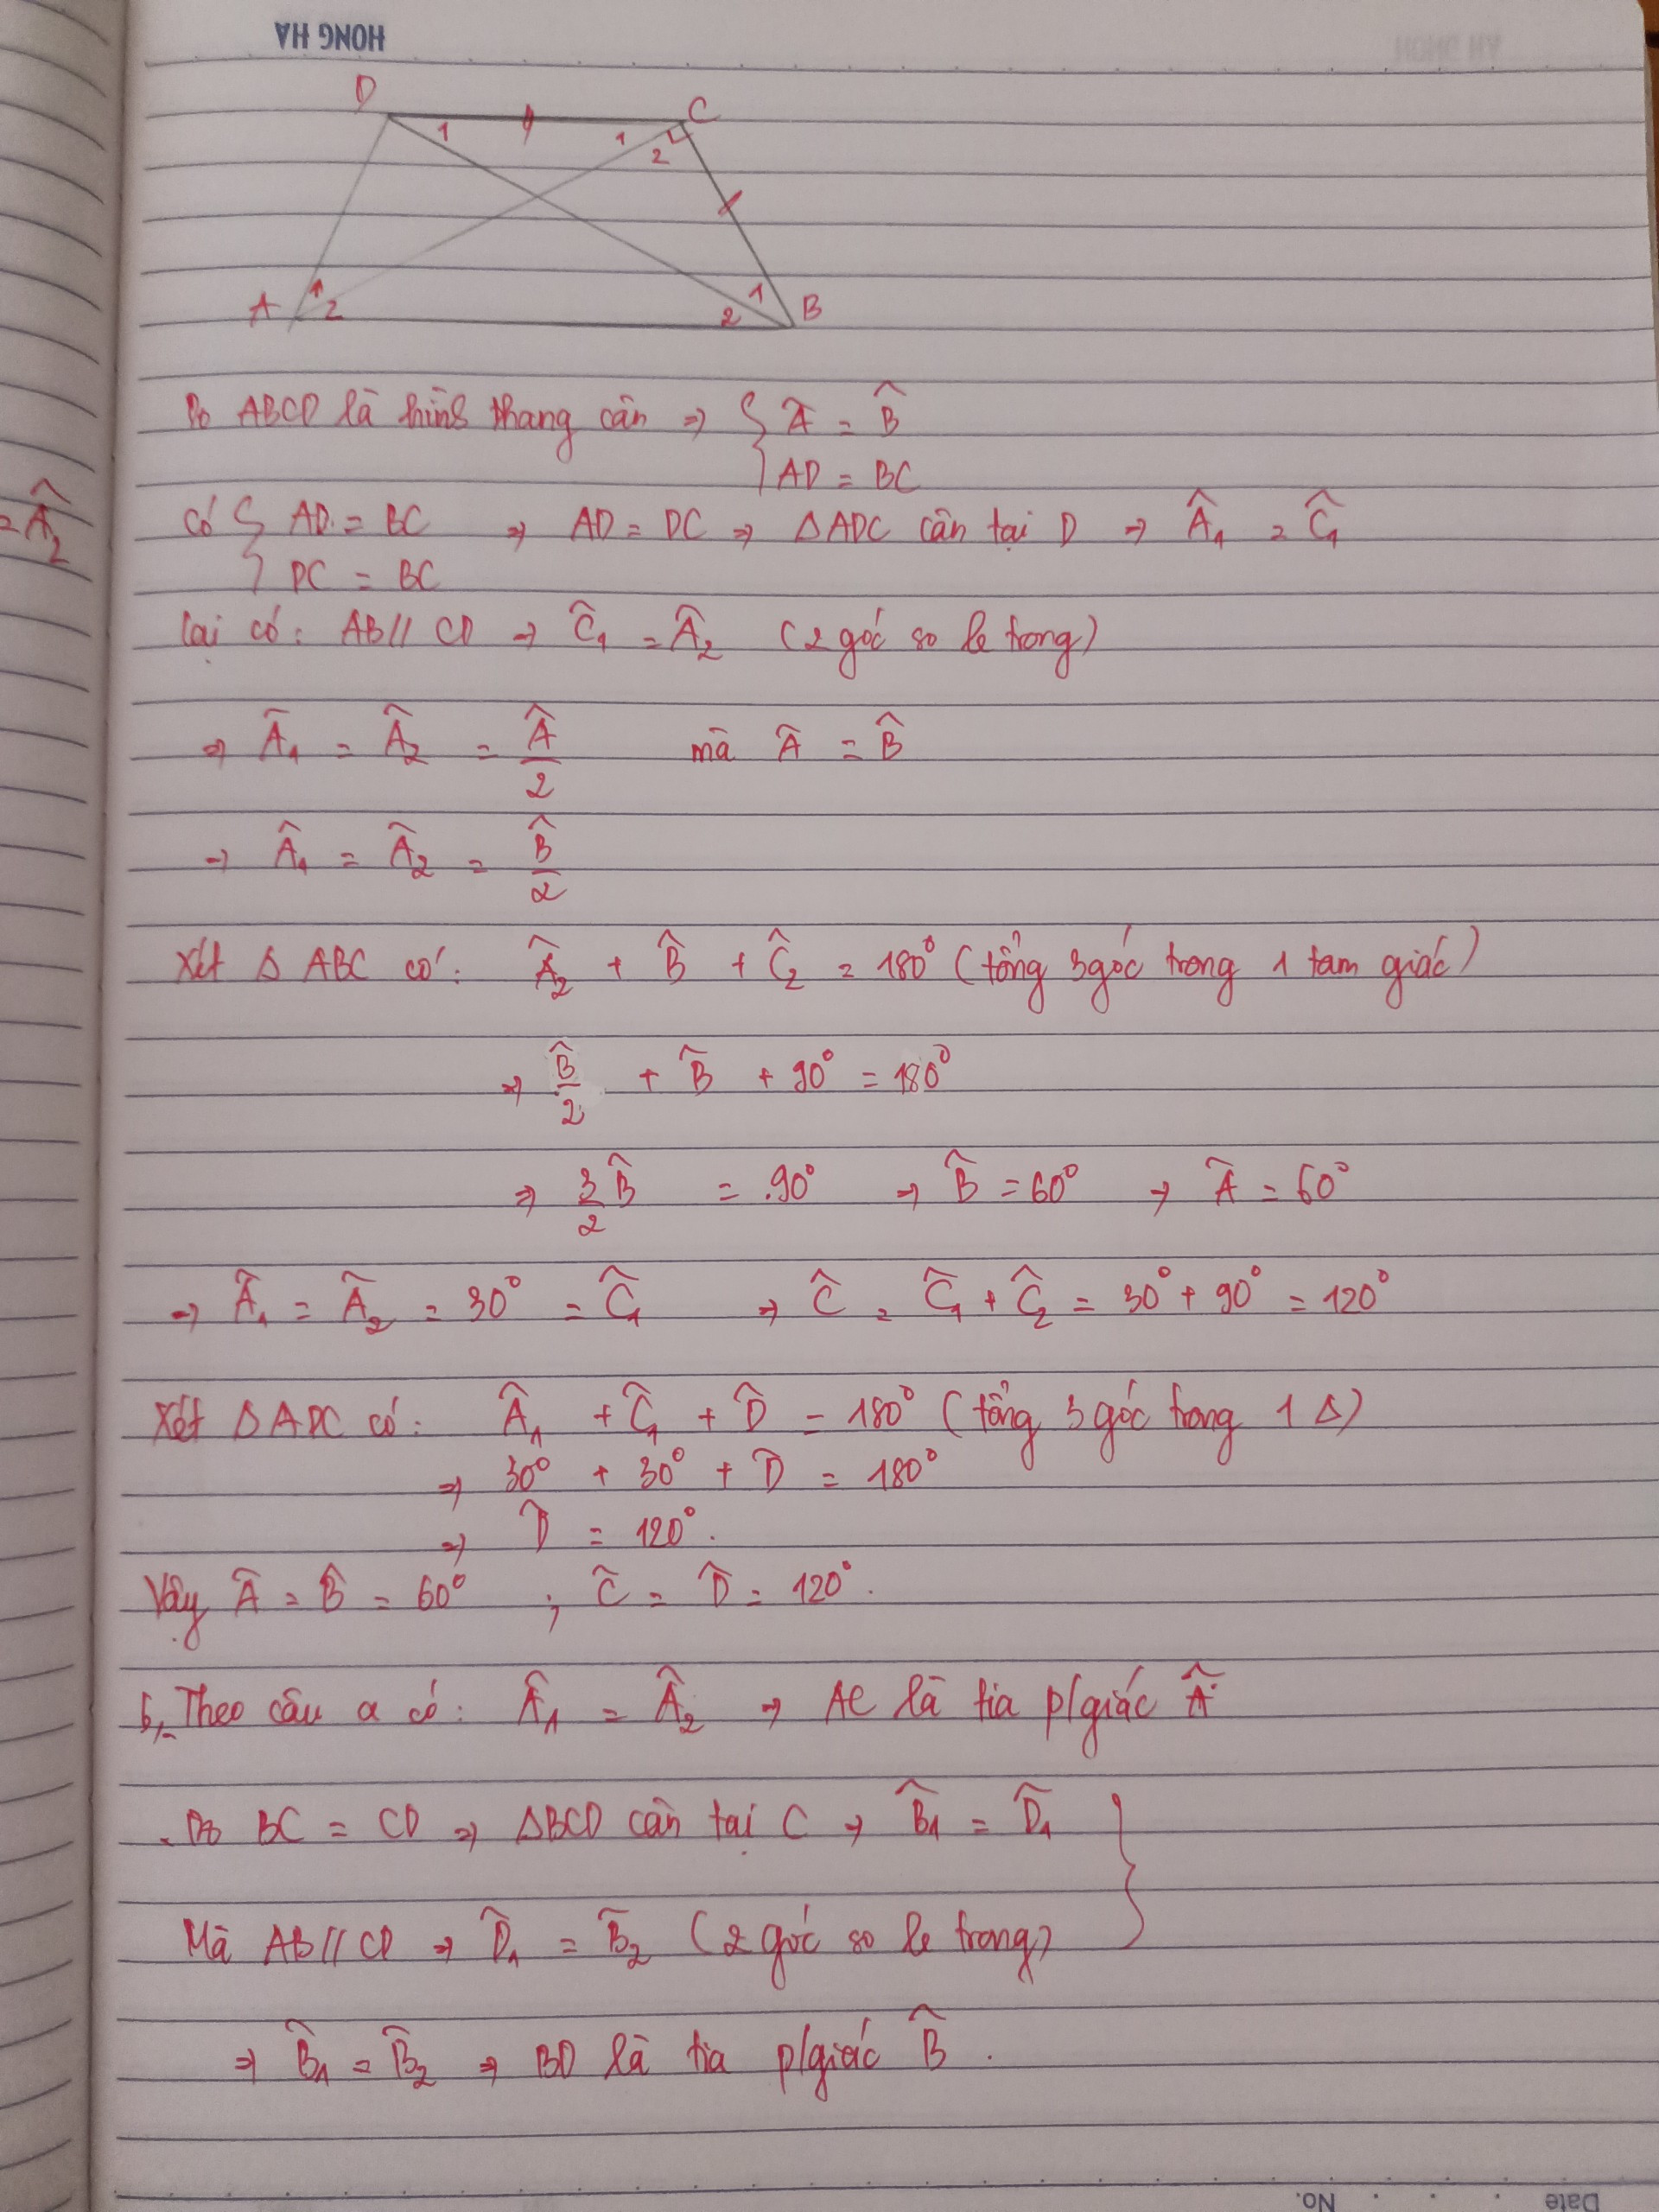 HONG HA
D
C
1
1
2
A
1
2
1
2
B
Do ABCD là hình thang cân ⇒ { Â = B̂
AD = BC
= Â₂
Có { AD = BC ⇒ AD = DC ⇒ ΔADC cân tại D ⇒ Â₁ = Ĉ₁
DC = BC
Lại có: AB // CD ⇒ Ĉ₁ = Â₂ (2 góc so le trong)
⇒ Â₁ = Â₂ = Â/2 mà Â = B̂
⇒ Â₁ = Â₂ = B̂/2
Xét Δ ABC có: Â₂ + B̂ + Ĉ₂ = 180° (tổng 3 góc trong 1 tam giác)
⇒ B̂/2 + B̂ + 90° = 180°
⇒ 3/2 B̂ = 90° ⇒ B̂ = 60° ⇒ Â = 60°
⇒ Â₁ = Â₂ = 30° = Ĉ₁ ⇒ Ĉ = Ĉ₁ + Ĉ₂ = 30° + 90° = 120°
Xét ΔADC có: Â₁ + Ĉ₁ + D̂ = 180° (tổng 3 góc trong 1 Δ)
⇒ 30° + 30° + D̂ = 180°
⇒ D̂ = 120°.
Vậy Â = B̂ = 60° ; Ĉ = D̂ = 120°.
b, Theo câu a có: Â₁ = Â₂ ⇒ AC là tia p/giác Â
. Do BC = CD ⇒ ΔBCD cân tại C ⇒ B̂₁ = D̂₁ }
Mà AB // CD ⇒ D̂₁ = B̂₂ (2 góc so le trong)
⇒ B̂₁ = B̂₂ ⇒ BD là tia p/giác B̂ .
No.
Date